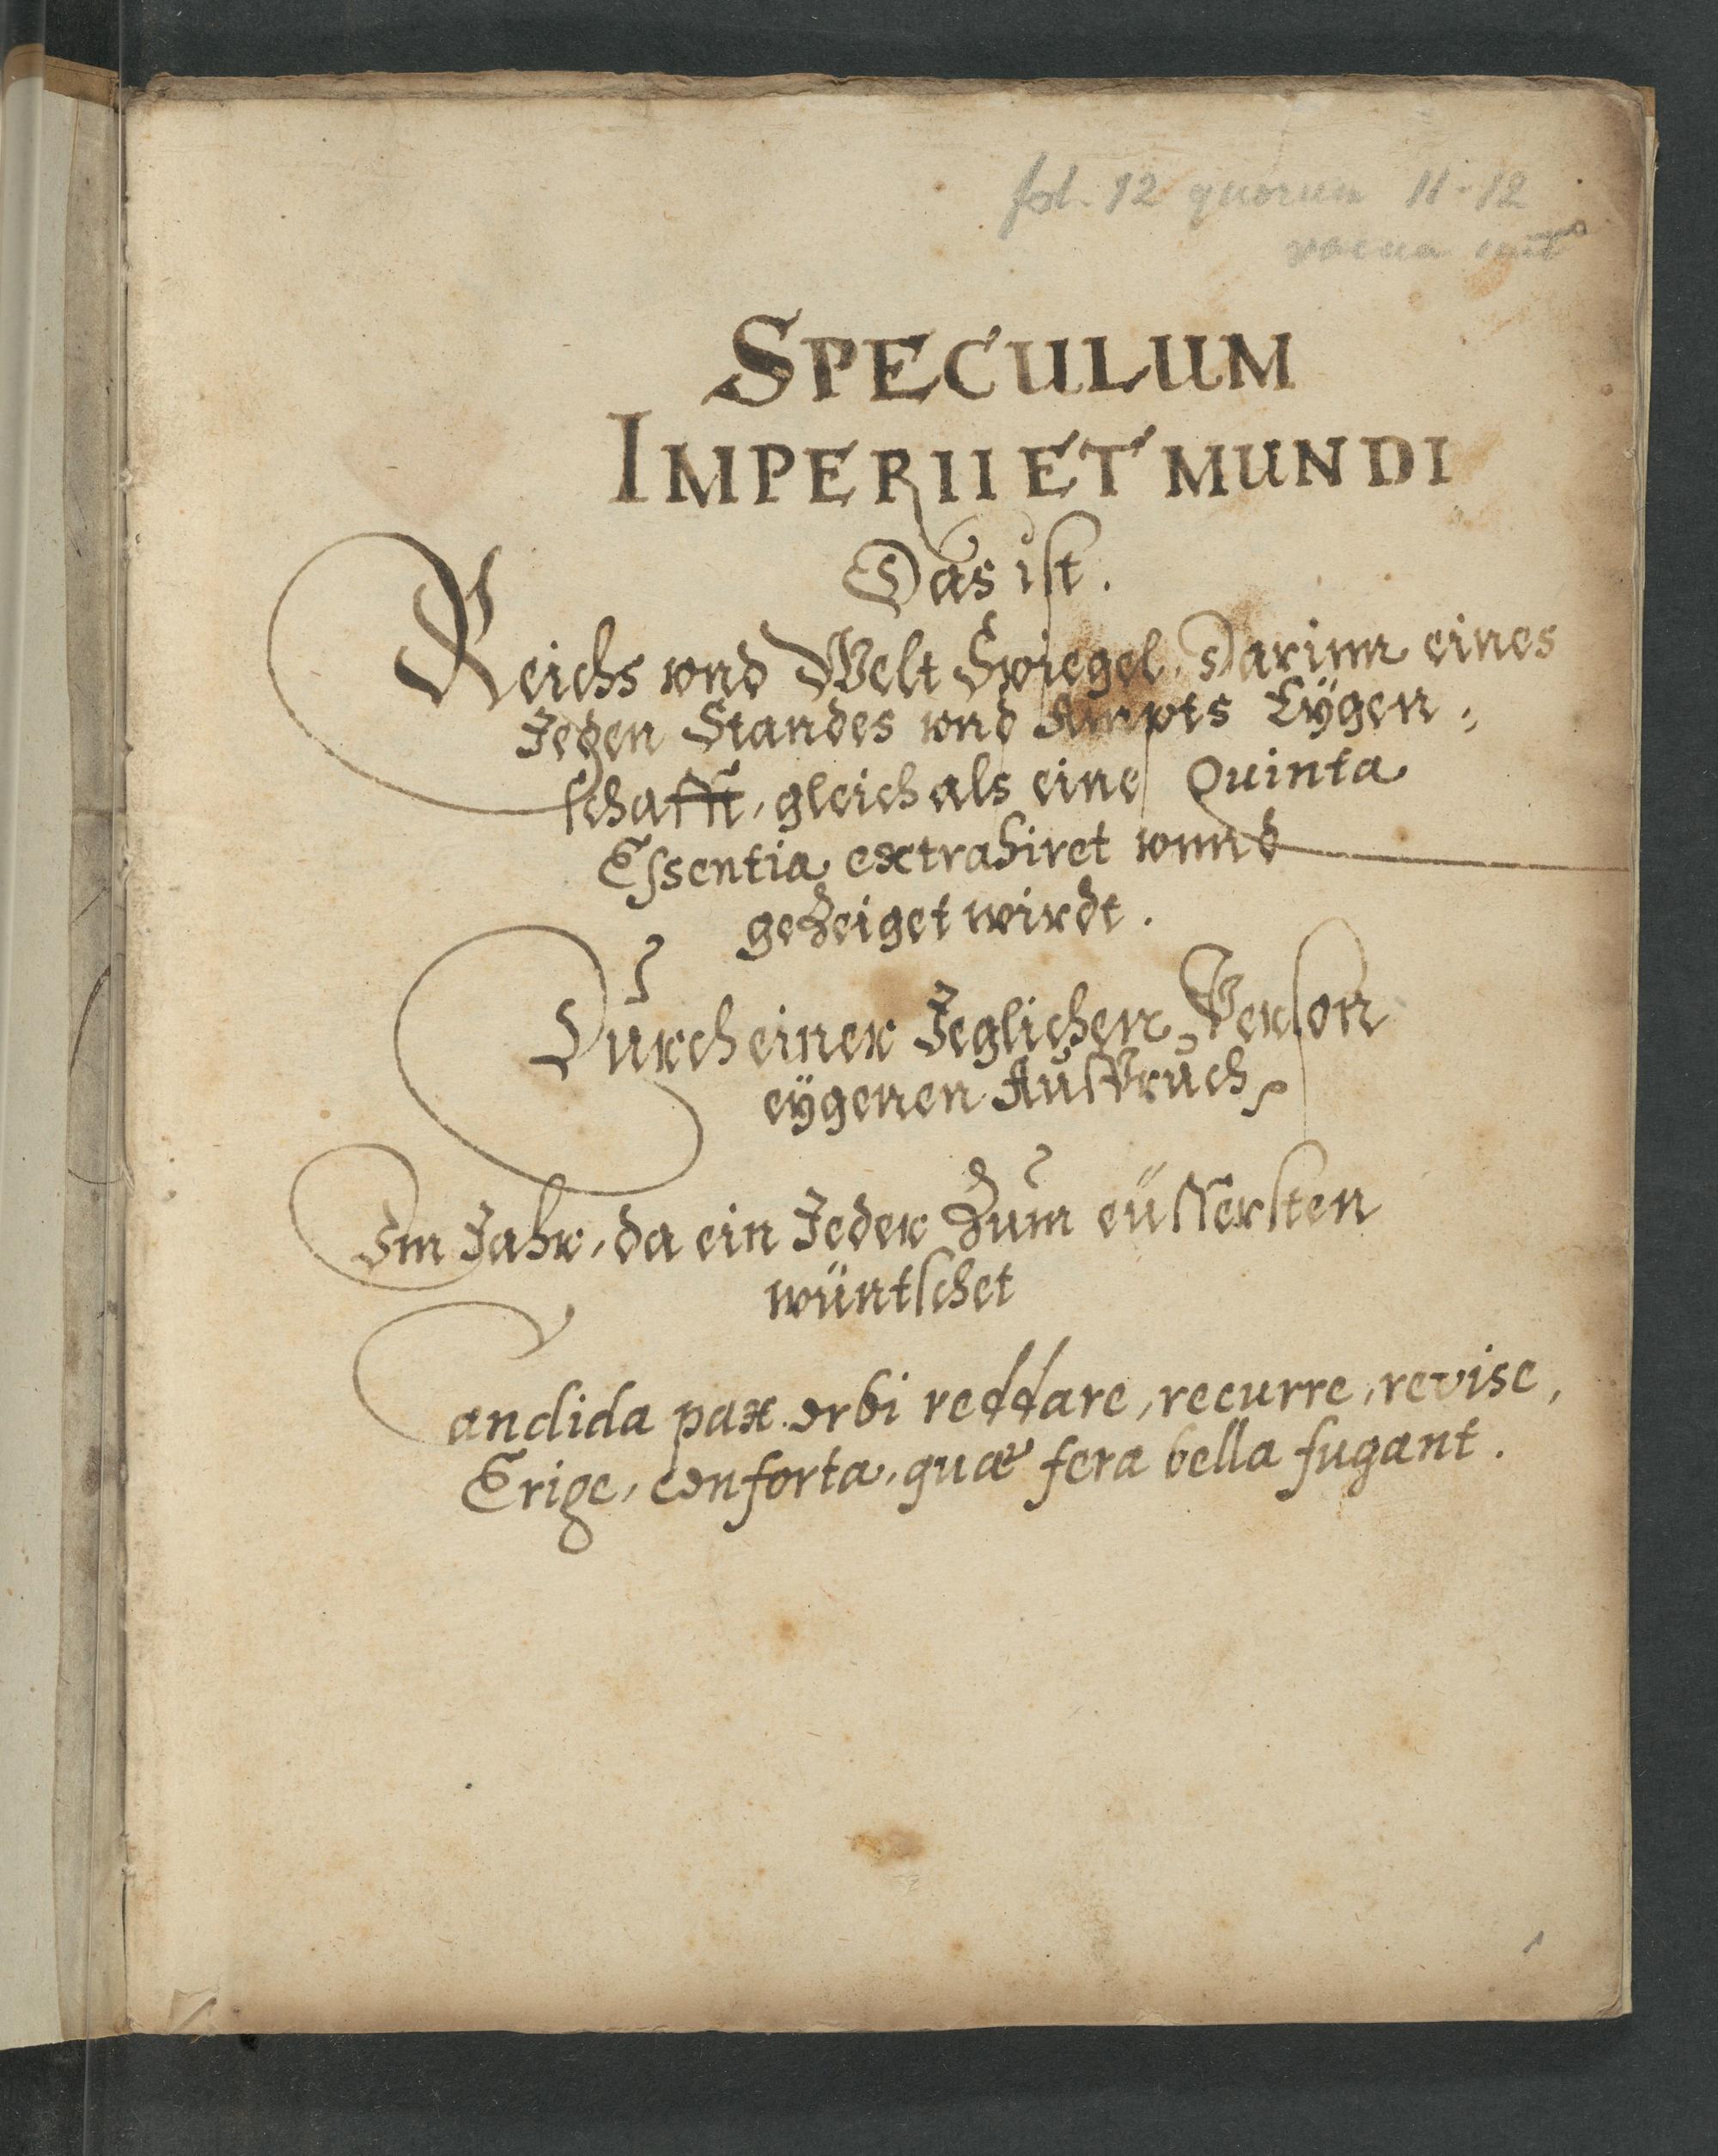 fol. 12 quorum 11-12
vacua sunt
SPECULUM
IMPERII ET MUNDI
Das ist.
Reichs vnd Welt Spiegel, Darinn eines
Jeden Standes vnd Ampts Eÿgen„
schafft, gleich als eine Quinta
Eſsentia extrahiret vnnd
gezeiget wirdt.
Durch einer Jeglichen Person
eÿgenen Ausspruch
Im Jahr, da ein Jeder zum eüssersten
wüntschet
Candida pax orbi reddare, recurre, revise,
Erige, conforta, quæ fera bella fugant.
1